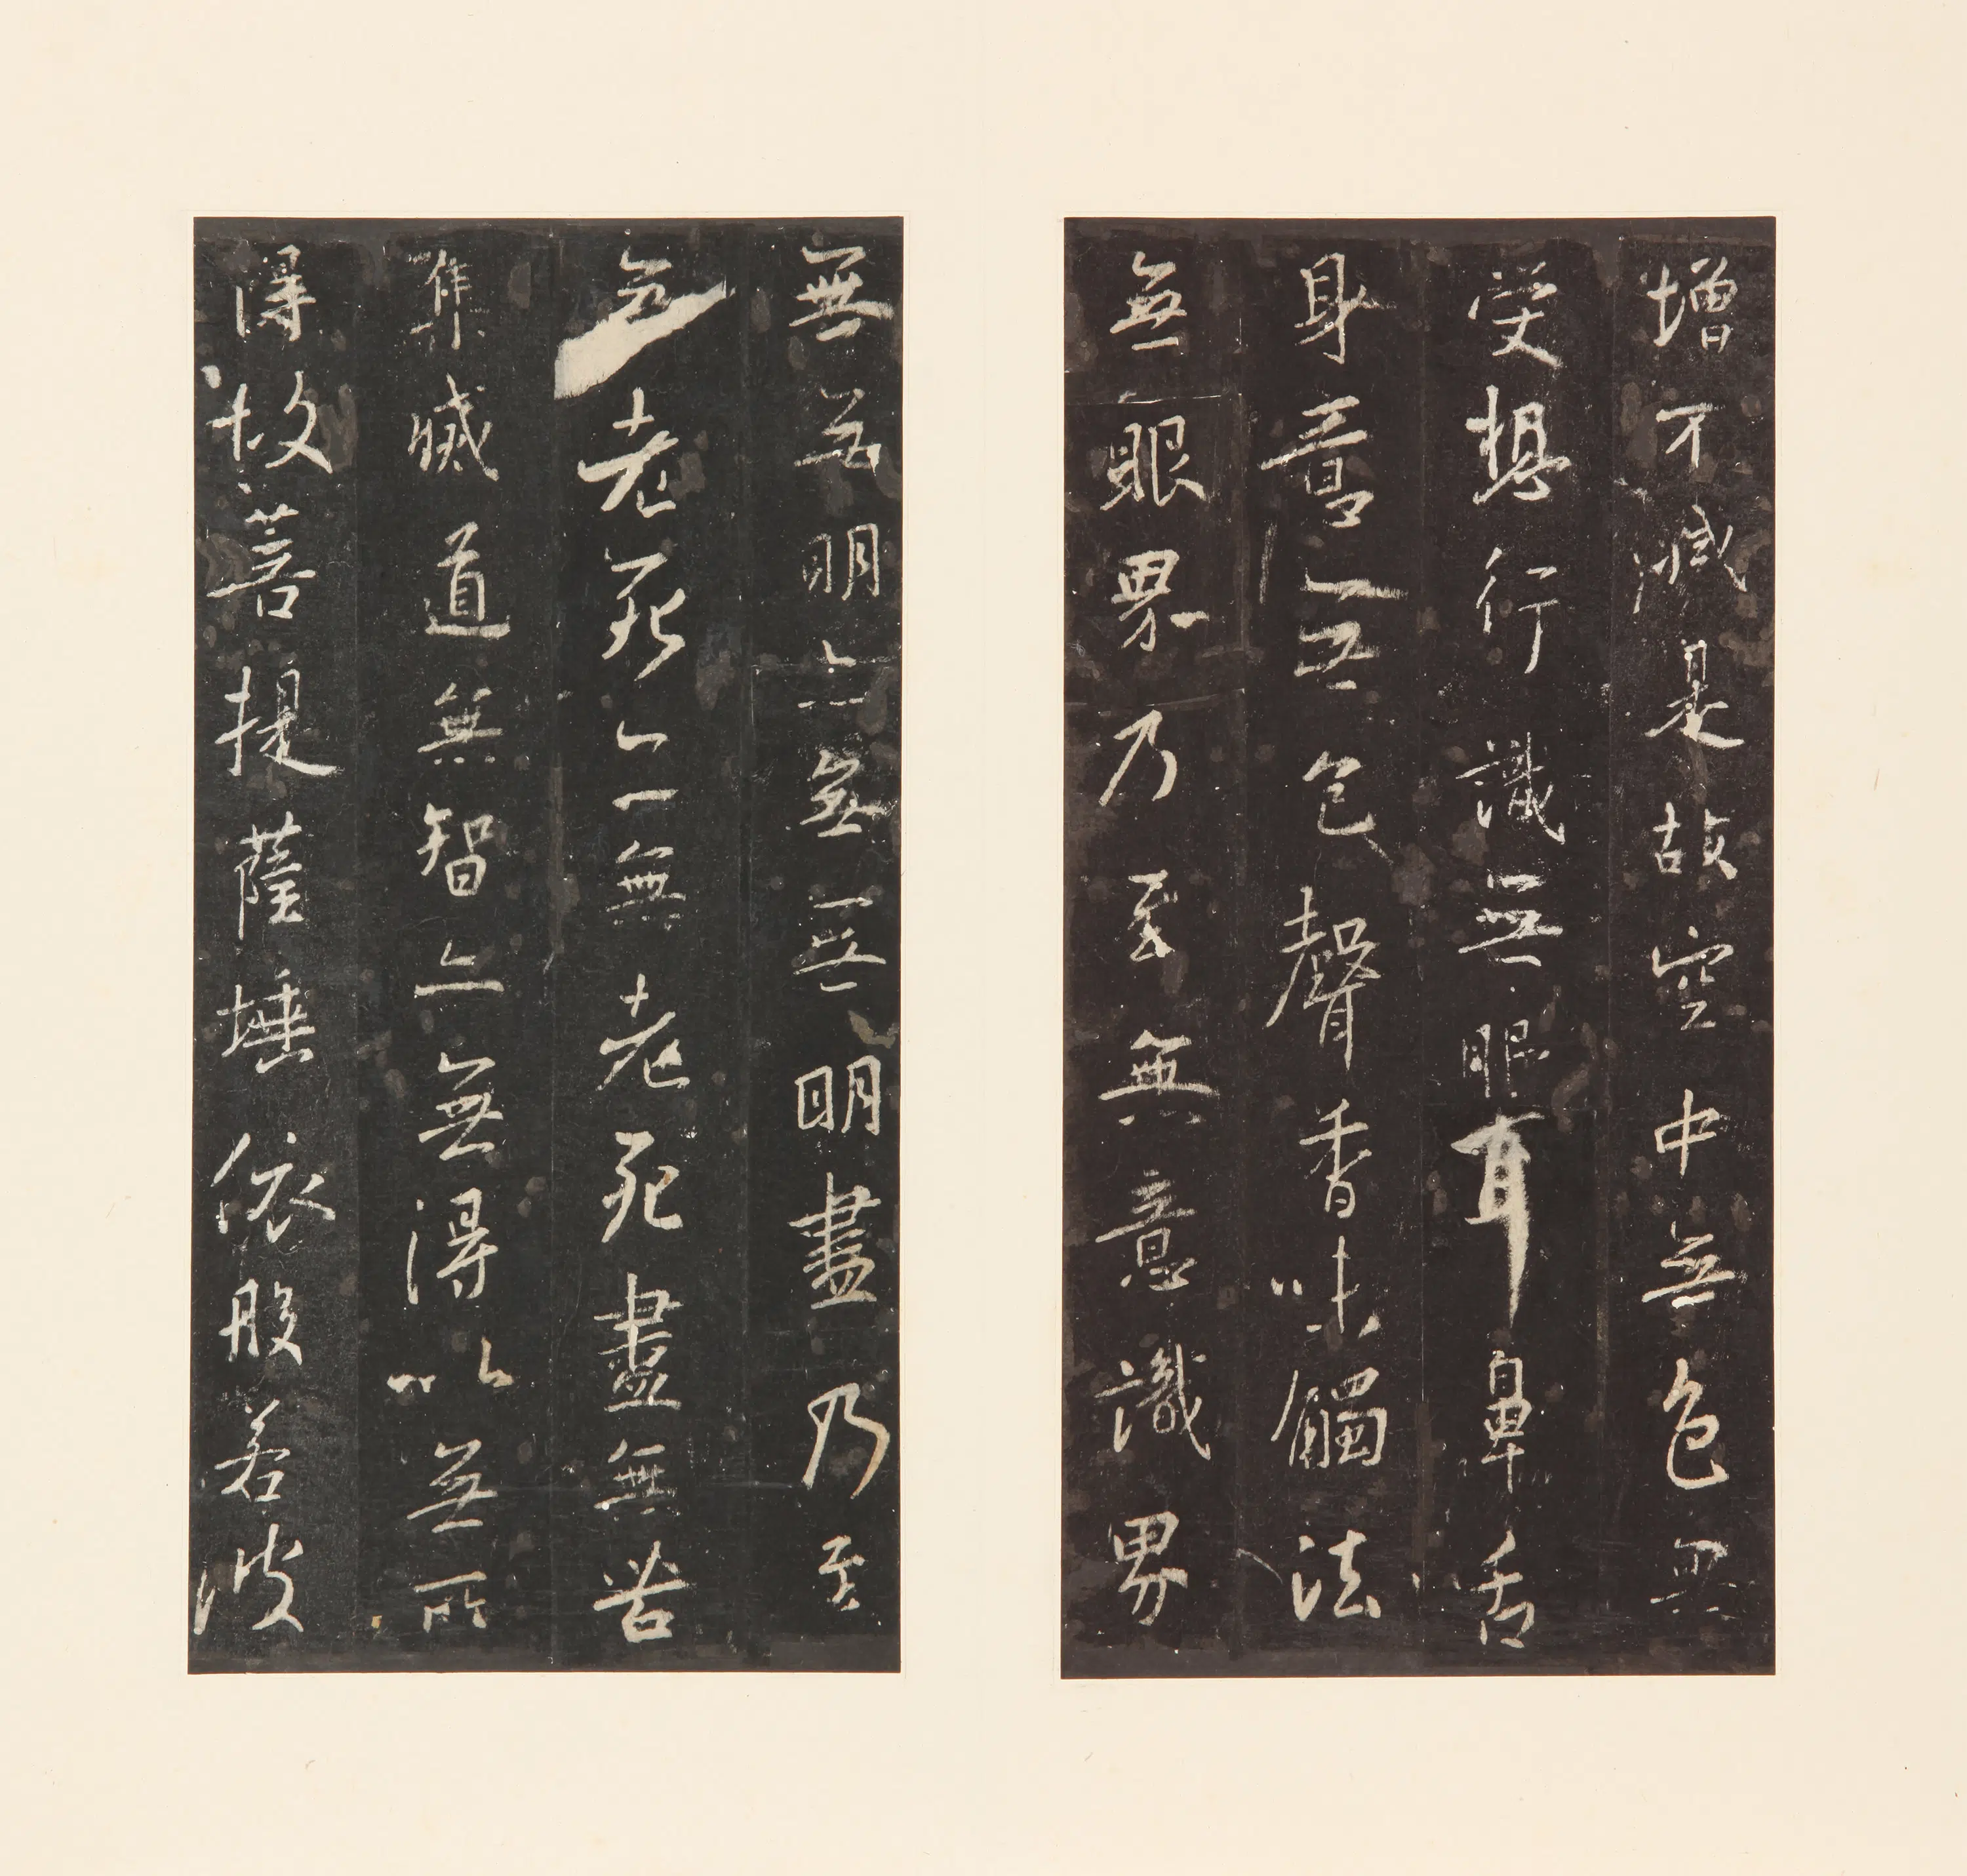 增不減是故空中無色無
受想行識無眼耳鼻舌
身意無色聲香味觸法
無眼界乃至無意識界
無無明亦無無明盡乃至
無老死亦無老死盡無苦
集滅道無智亦無得以無所
得故菩提薩埵依般若波